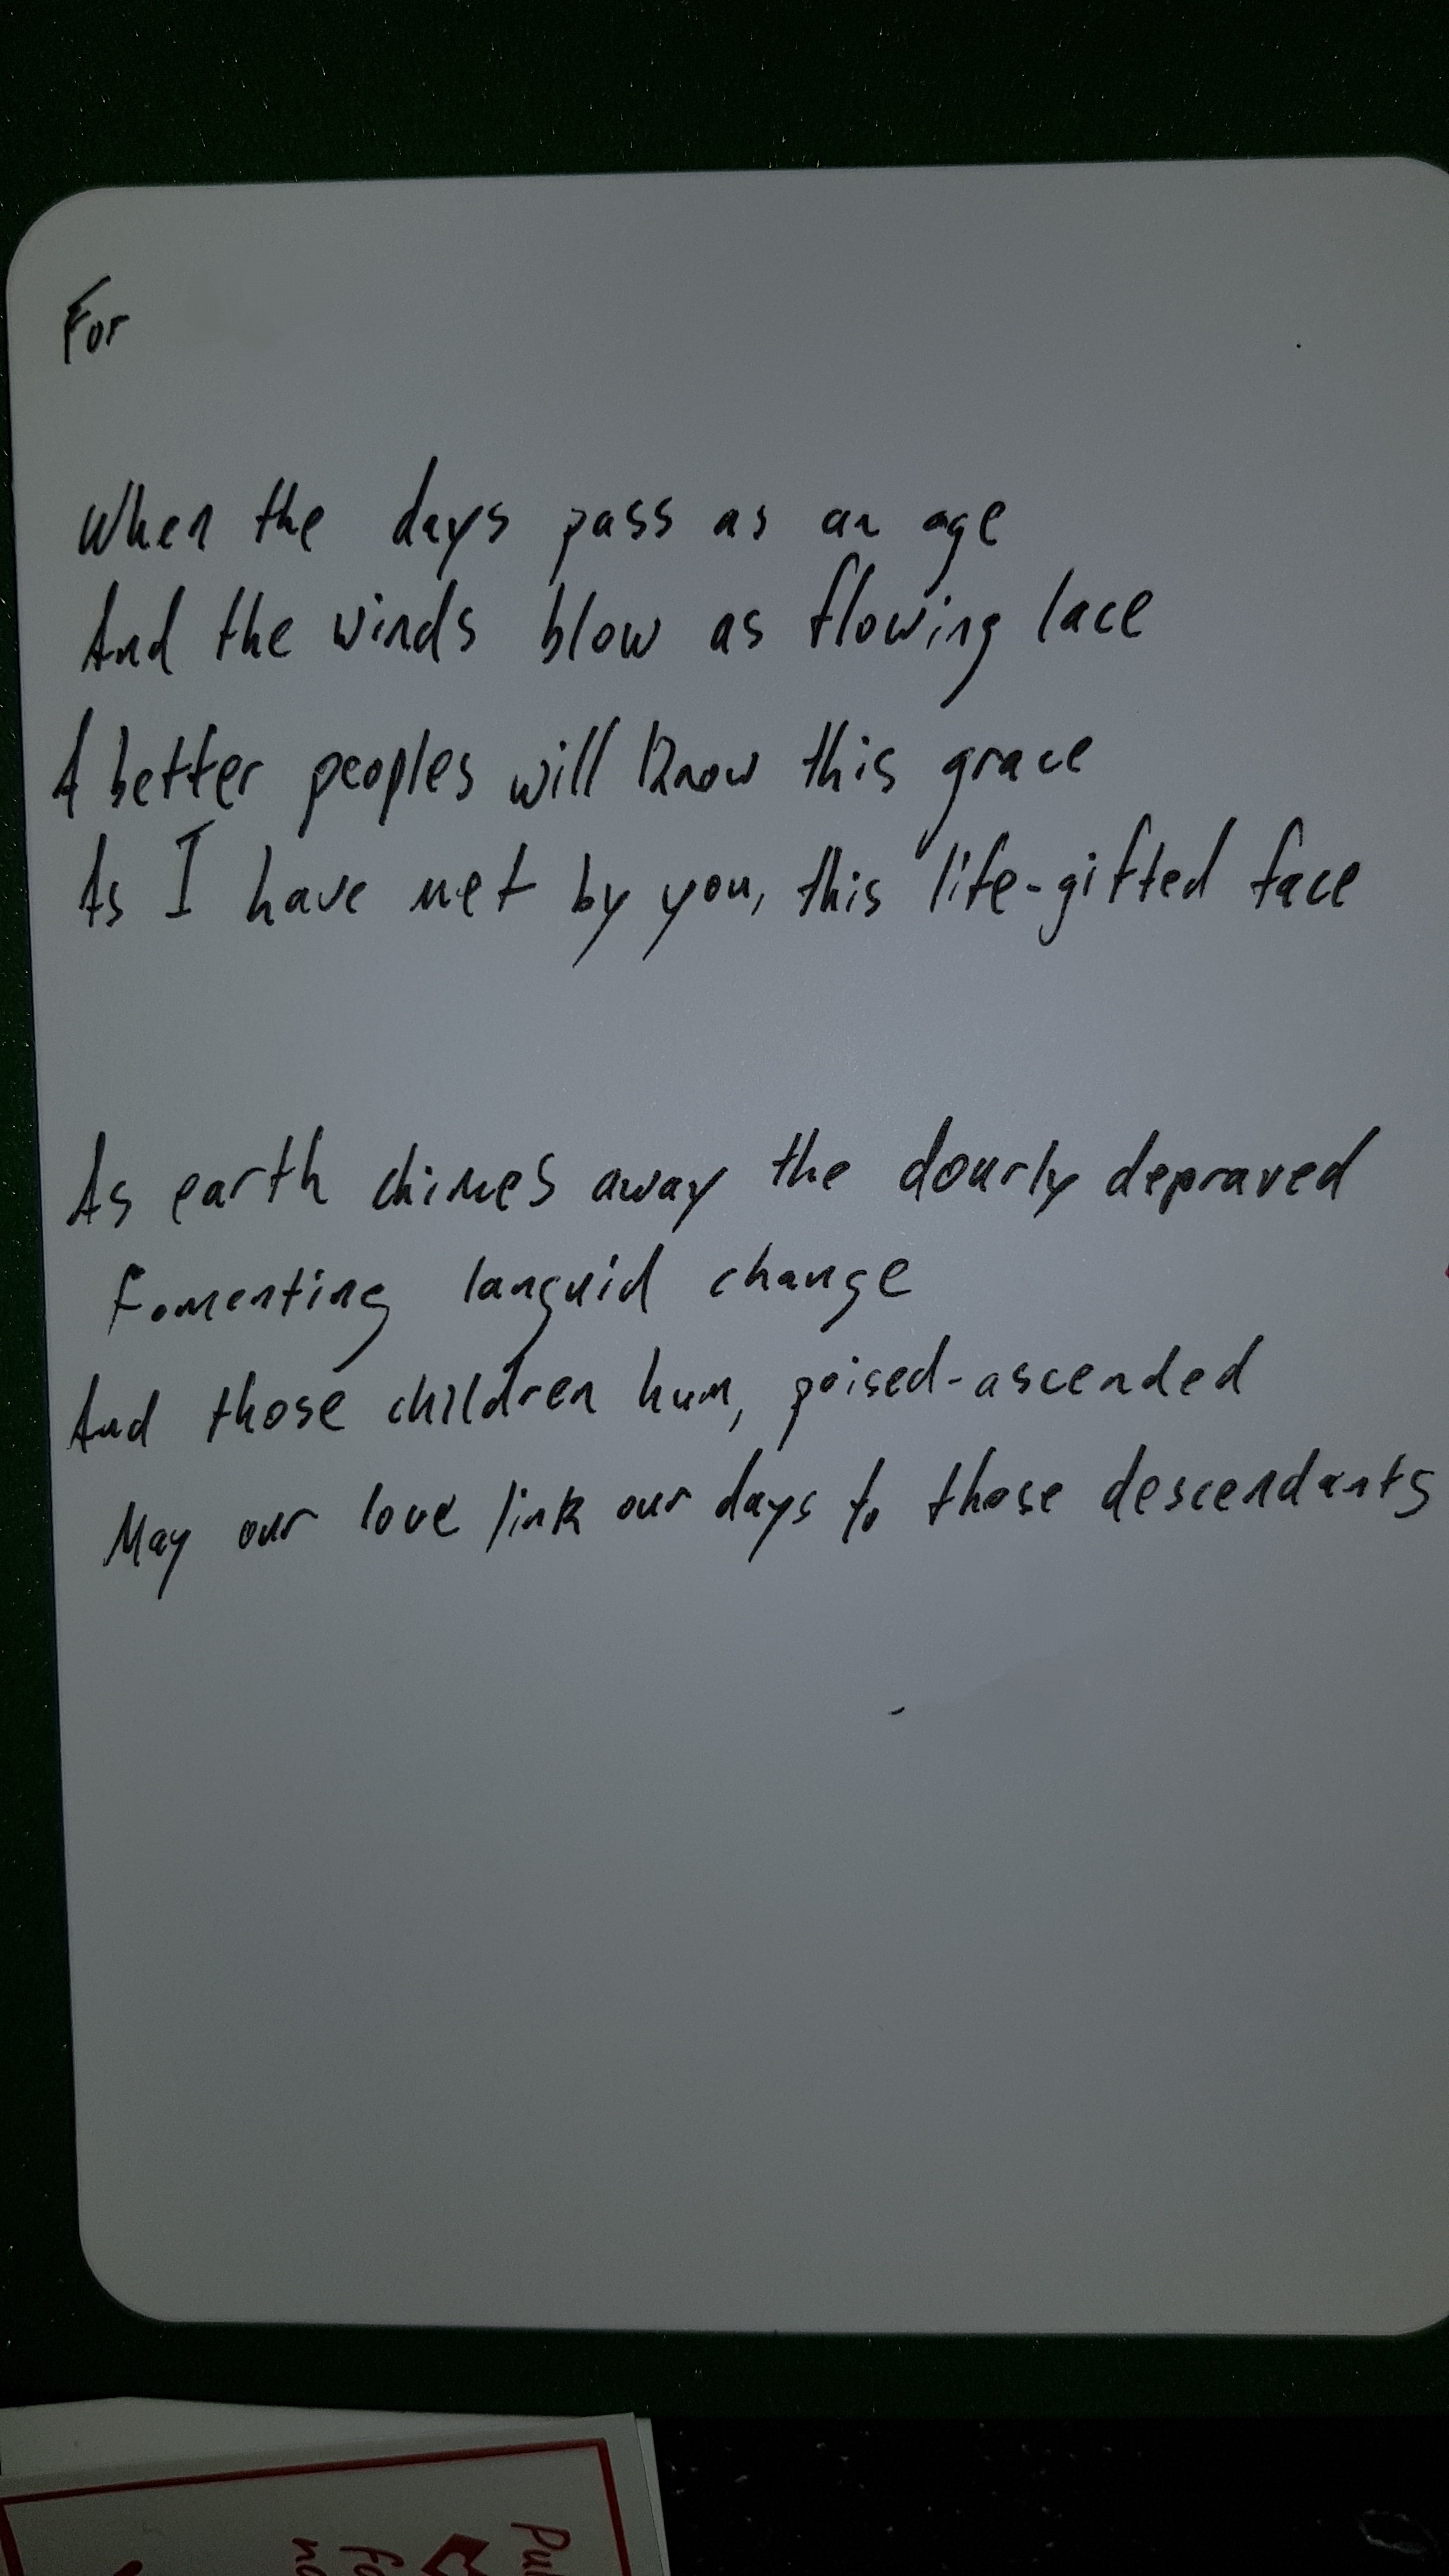 For
When the days pass as an age
And the winds blow as flowing lace
A better peoples will know this grace
As I have met by you, this life-gifted face
As earth chimes away the dourly depraved
Fomenting languid change
And those children hum, poised-ascended
May our love link our days to those descendants